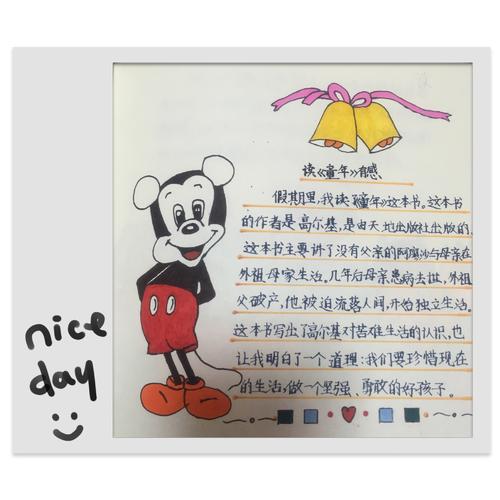 读《童年》有感
假期里,我读了《童年》这本书。这本书
的作者是高尔基,是由天地出版社出版的,
这本书主要讲了没有父亲的阿廖沙与母亲在
外祖母家生活。几年后母亲患病去世,外祖
父破产,他被迫流落人间,开始独立生活。
这本书写出了高尔基对苦难生活的认识,也
让我明白了一个道理:我们要珍惜现在
的生活,做一个坚强、勇敢的好孩子。
nice
day